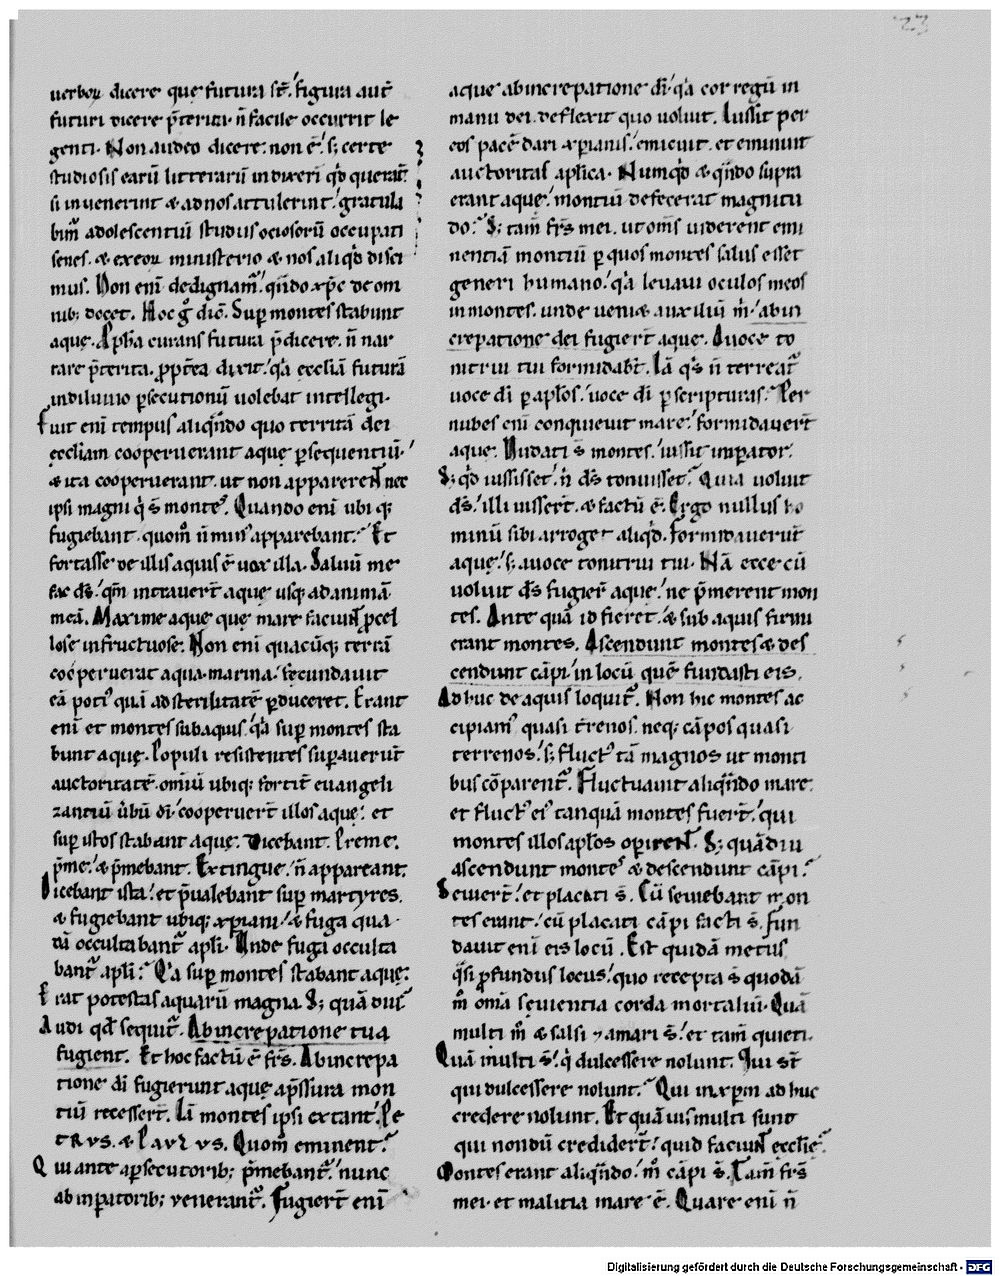 23
uerboꝝ dicere quę futura st̄. figura aut̄
futuri dicere p̄terita. n̄ facile occurrit le
genti. Non audeo dicere. non ē. s; certe
studiosis earū litterarū indixeri q̇d querat̄.
si inuenerint & ad nos attulerint. gratula
bim̄ adolescentiū studiis ociosorū occupati
senes. & ex eoꝝ ministerio & nos aliq̇d disci
mus. Non eni dedignam̄. qn̄do xp̄c de om
nib; docet. Hoc g̊ dic̄. Sup̱ montes stabunt
aquę. Ap̱ha curans futura p̄dicere. n̄ nar
rare p̄terita. ꝓpt̄ea dixit. qͥa eccliā futurā
in diluuio ꝑsecutionū uolebat intellegi.
Fuit eni tempus aliqn̄do quo territā dei
ęccliam cooperuerant aquę ꝑsequentiū.
& ita cooperuerant. ut non apparerent nec
ipsi magni q̇ s̄ montes. Quando eni ubiq;
fugiebant. quom̊ n̄ minus apparebant. Et
fortasse de illis aquis ē uox illa. Saluū me
fac ds̄. qm̄ intrauert̄ aquę usq; ad animā
meā. Maxime aquę quę mare faciunt ꝓcel
lose infructuose. Non eni quacūq; terrā
cooperuerat aqua marina. fęcundauit
eā potiꝰ quā ad sterilitatē ꝑduceret. Erant
eni et montes sub aquis. qͥa sup̱ montes sta
bunt aquę. Populi resistentes suꝑauerunt
auctoritatē omiū ubiq; fortit̄ euangeli
zantiū ůbū di. cooperuert̄ illos aquę. et
sup̱ istos stabant aquę. Dicebant. Preme.
p̄me. & p̄mebant. Extingue. n̄ appareant.
Dicebant ista. et p̄ualebant sup̱ martyres.
& fugiebant ubiq; xp̄iani. & fuga qua
dā occultabant̄ apli. Unde fuga occulta
bant̄ apli. Qͥa sup̱ montes stabant aquę.
Erat potestas aquarū magna. S; quā diu.
Audi qd̄ sequit̄. Ab increpatione tua
fugient. Et hoc factū ē frs̄. Ab increpa
tione di fugierunt aquę a p̄ssura mon
tiū recessert̄. Iā montes ipsi extant. Pe
trus. & Paulus. Quom̊ eminent.
Qui ante a ꝑsecutorib; p̄mebant̄. nunc
ab inꝑatorib; venerant̄. Fugiert̄ eni
aquę ab increpatione di. qͥa cor regū in
manu dei. deflexit quo uoluit. Iussit per
eos pacē dari xp̄ianis. emicuit. et eminuit
auctoritas aplica. Numq̇d & qn̄do supra
erant aquę. montiū defecerat magnitu
do. S; tam̄ frs̄ mei. ut oms̄ uiderent emi
nentiā montiū ꝑ quos montes salus esset
generi humano. qͥa leuaui oculos meos
in montes. unde ueniet auxiliū m̊. ab in
crepatione dei fugiert̄ aquę. A uoce to
nitrui tui formidabt̄. Iā q̇s n̄ terreat̄
uoce di ꝑ aplos. uoce di ꝑ scripturas. Per
nubes eni conquieuit mare. formidauert̄
aquę. Nudati s̄ montes. iussit imꝑator.
S; q̇d iussisset. n̄ ds̄ tonuisset. Quia uoluit
ds̄. illi iussert̄. & factū ē. Ergo nullus ho
minū sibi arroget aliq̇d. Formidauerunt
aquę. s; a uoce tonitrui tui. Nā ecce cū
uoluit ds̄ fugiert̄ aquę. ne p̄merent mon
tes. Ante quā id fieret. & sub aquis firmi
erant montes. Ascendunt montes & des
cendunt cāpi. in locū quē fundasti eis.
Adhuc de aquis loquit̄. Non hic montes ac
cipiamꝰ quasi t̄renos. neq; cāpos quasi
terrenos. s; fluctꝰ tā magnos ut monti
bus cōparent̄. Fluctuauit aliqn̄do mare.
et fluctꝰ eiꝰ tanquā montes fuert̄. qui
montes illos aplos operirent. S; quā diu
ascendunt montes & descendunt cāpi.
Seuiert̄. et placati s̄. Cū seuiebant mon
tes erant. cū placati cāpi facti s̄. Fun
dauit eni eis locū. Est quidā metus
q̄si ꝓfundus locus. quo recepta s̄ quodā
m̊ omā sęuientia corda mortaliū. Quā
multi m̊ & salsi ⁊ amari s̄. et tam̄ quieti.
Quā multi s̄. q̇ dulcessere nolunt. Qui st̄
qui dulcessere nolunt. Qui in xp̄m adhuc
credere nolunt. Et quā uis multi sunt
qui nondū crediderт̄. quid faciunt ecclię.
Montes erant aliqn̄do. m̊ cāpi s̄. Tam̄ frs̄
mei. et malitia mare ē. Quare eni n̄
Digitalisierung gefördert durch die Deutsche Forschungsgemeinschaft - DFG